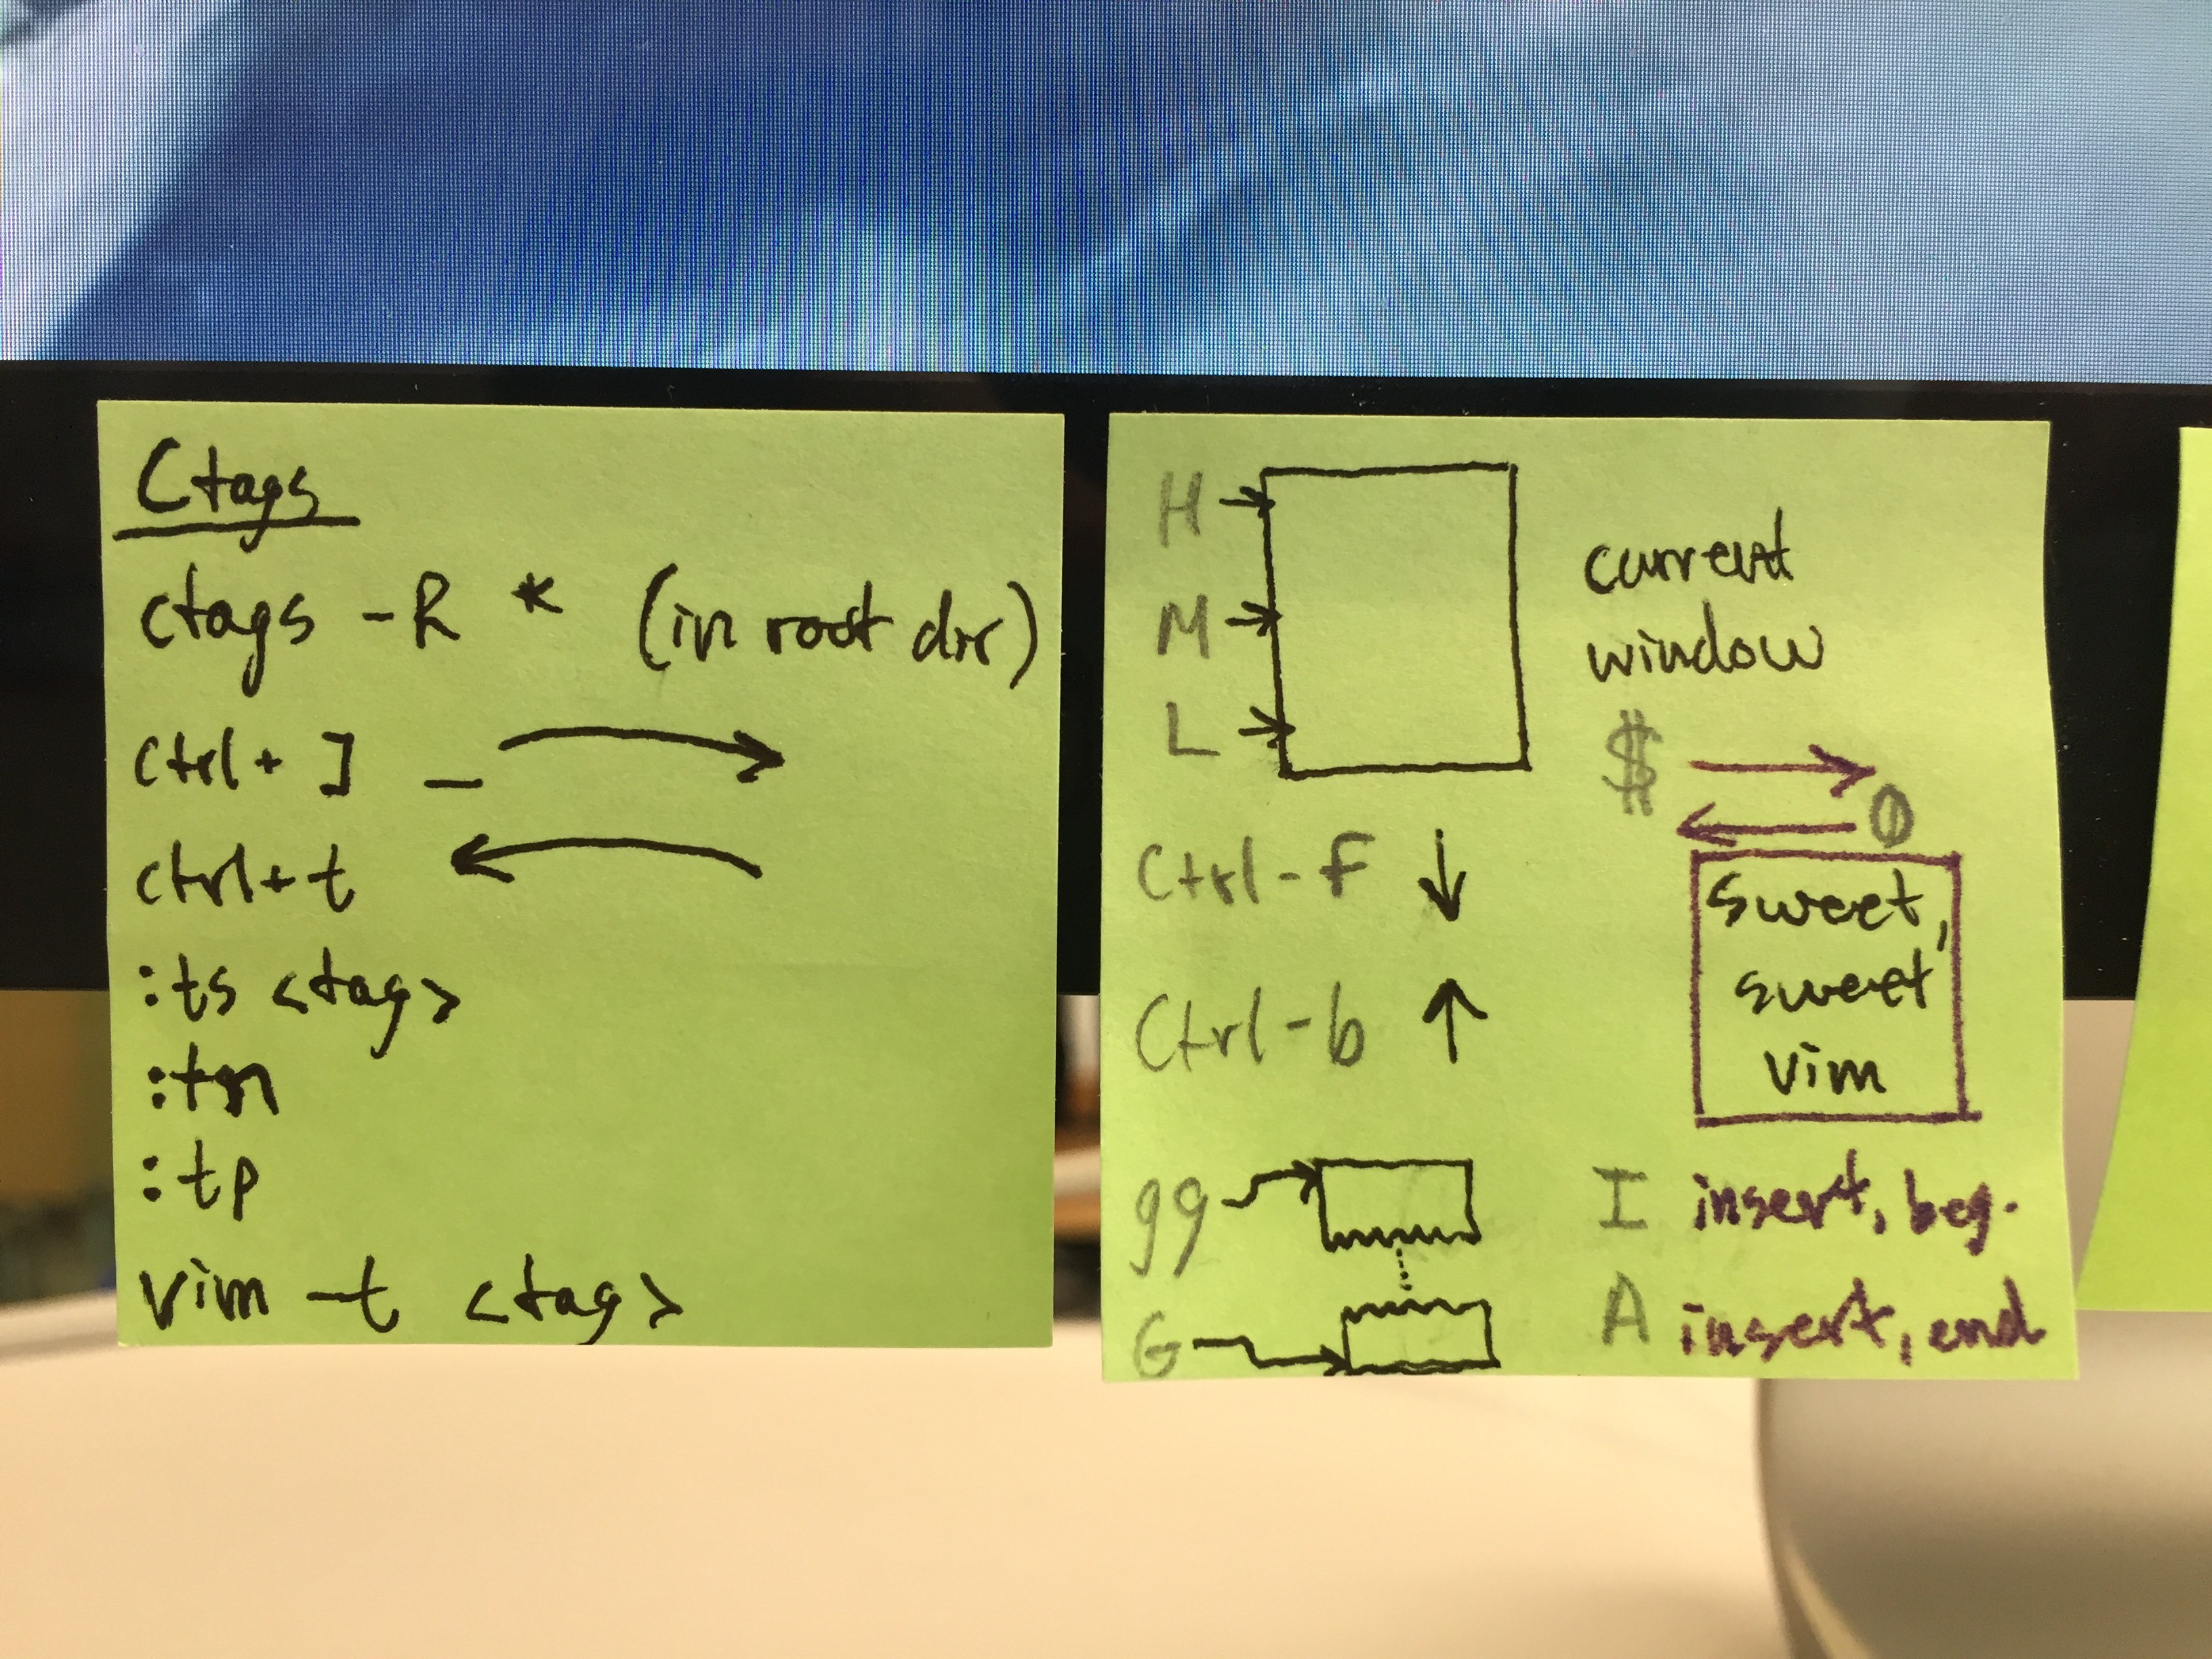 Ctags
ctags -R * (in root dir)
ctrl+ ]
ctrl+t
:ts <tag>
:tn
:tp
vim -t <tag>
H
M
L
current
window
$
0
Ctrl-f
Ctrl-b
sweet,
sweet
vim
gg
G
I insert, beg.
A insert, end